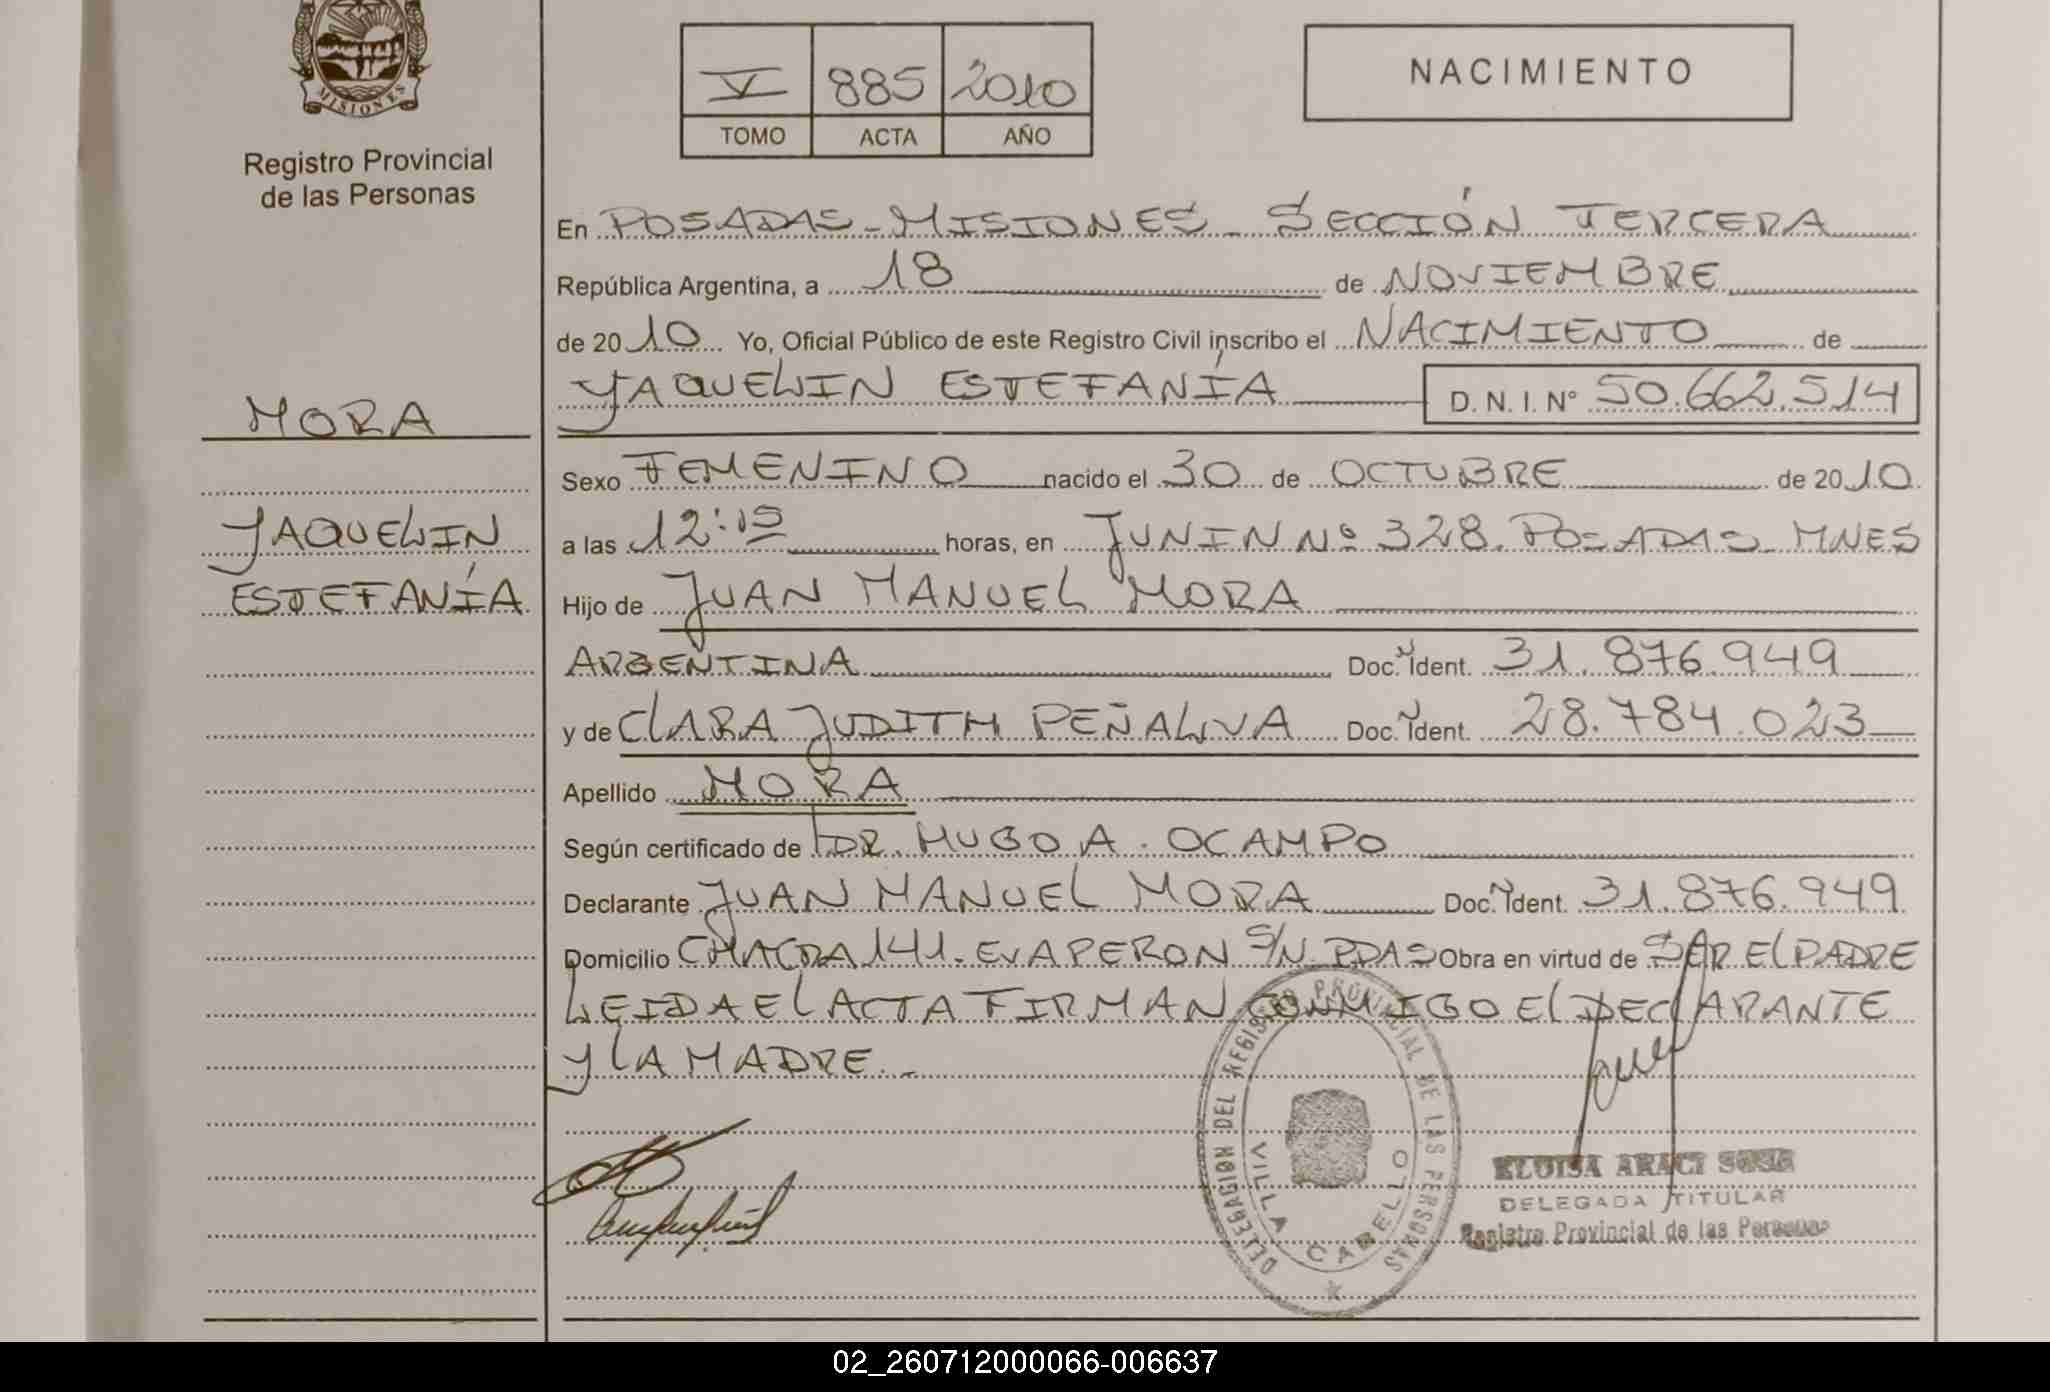 MISIONES
Registro Provincial
de las Personas
V 885 2010
TOMO ACTA AÑO
NACIMIENTO
En POSADAS - MISIONES - SECCIÓN TERCERA
República Argentina, a 18 de NOVIEMBRE
de 2010 Yo, Oficial Público de este Registro Civil inscribo el NACIMIENTO de
YAQUELIN ESTEFANÍA D. N. I. N° 50.662.514
MORA
YAQUELIN
ESTEFANÍA
Sexo FEMENINO nacido el 30 de OCTUBRE de 2010
a las 12:15 horas, en JUNIN Nº 328. POSADAS - MNES
Hijo de JUAN MANUEL MORA
ARGENTINA Doc. Ident. 31.876.949
y de CLARA JUDITH PEÑALVA Doc. Ident. 28.784.023
Apellido MORA
Según certificado de DR. HUGO A. OCAMPO
Declarante JUAN MANUEL MORA Doc. Ident. 31.876.949
Domicilio CHACRA 141 - EVA PERON S/N. PDAS Obra en virtud de SER EL PADRE
LEIDA EL ACTA FIRMAN CONMIGO EL DECLARANTE
Y LA MADRE. -
DELEGACION DEL REGISTRO PROVINCIAL DE LAS PERSONAS
VILLA CABELLO
ELOISA ARACI SOSA
DELEGADA TITULAR
Registro Provincial de las Personas
02_260712000066-006637